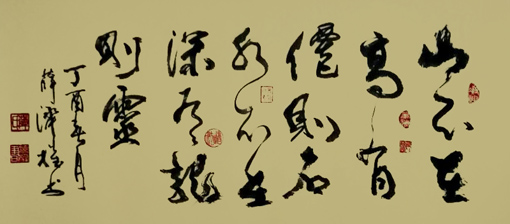 山不在
高有
僊則名
水不在
深有龍
則靈
丁酉春月